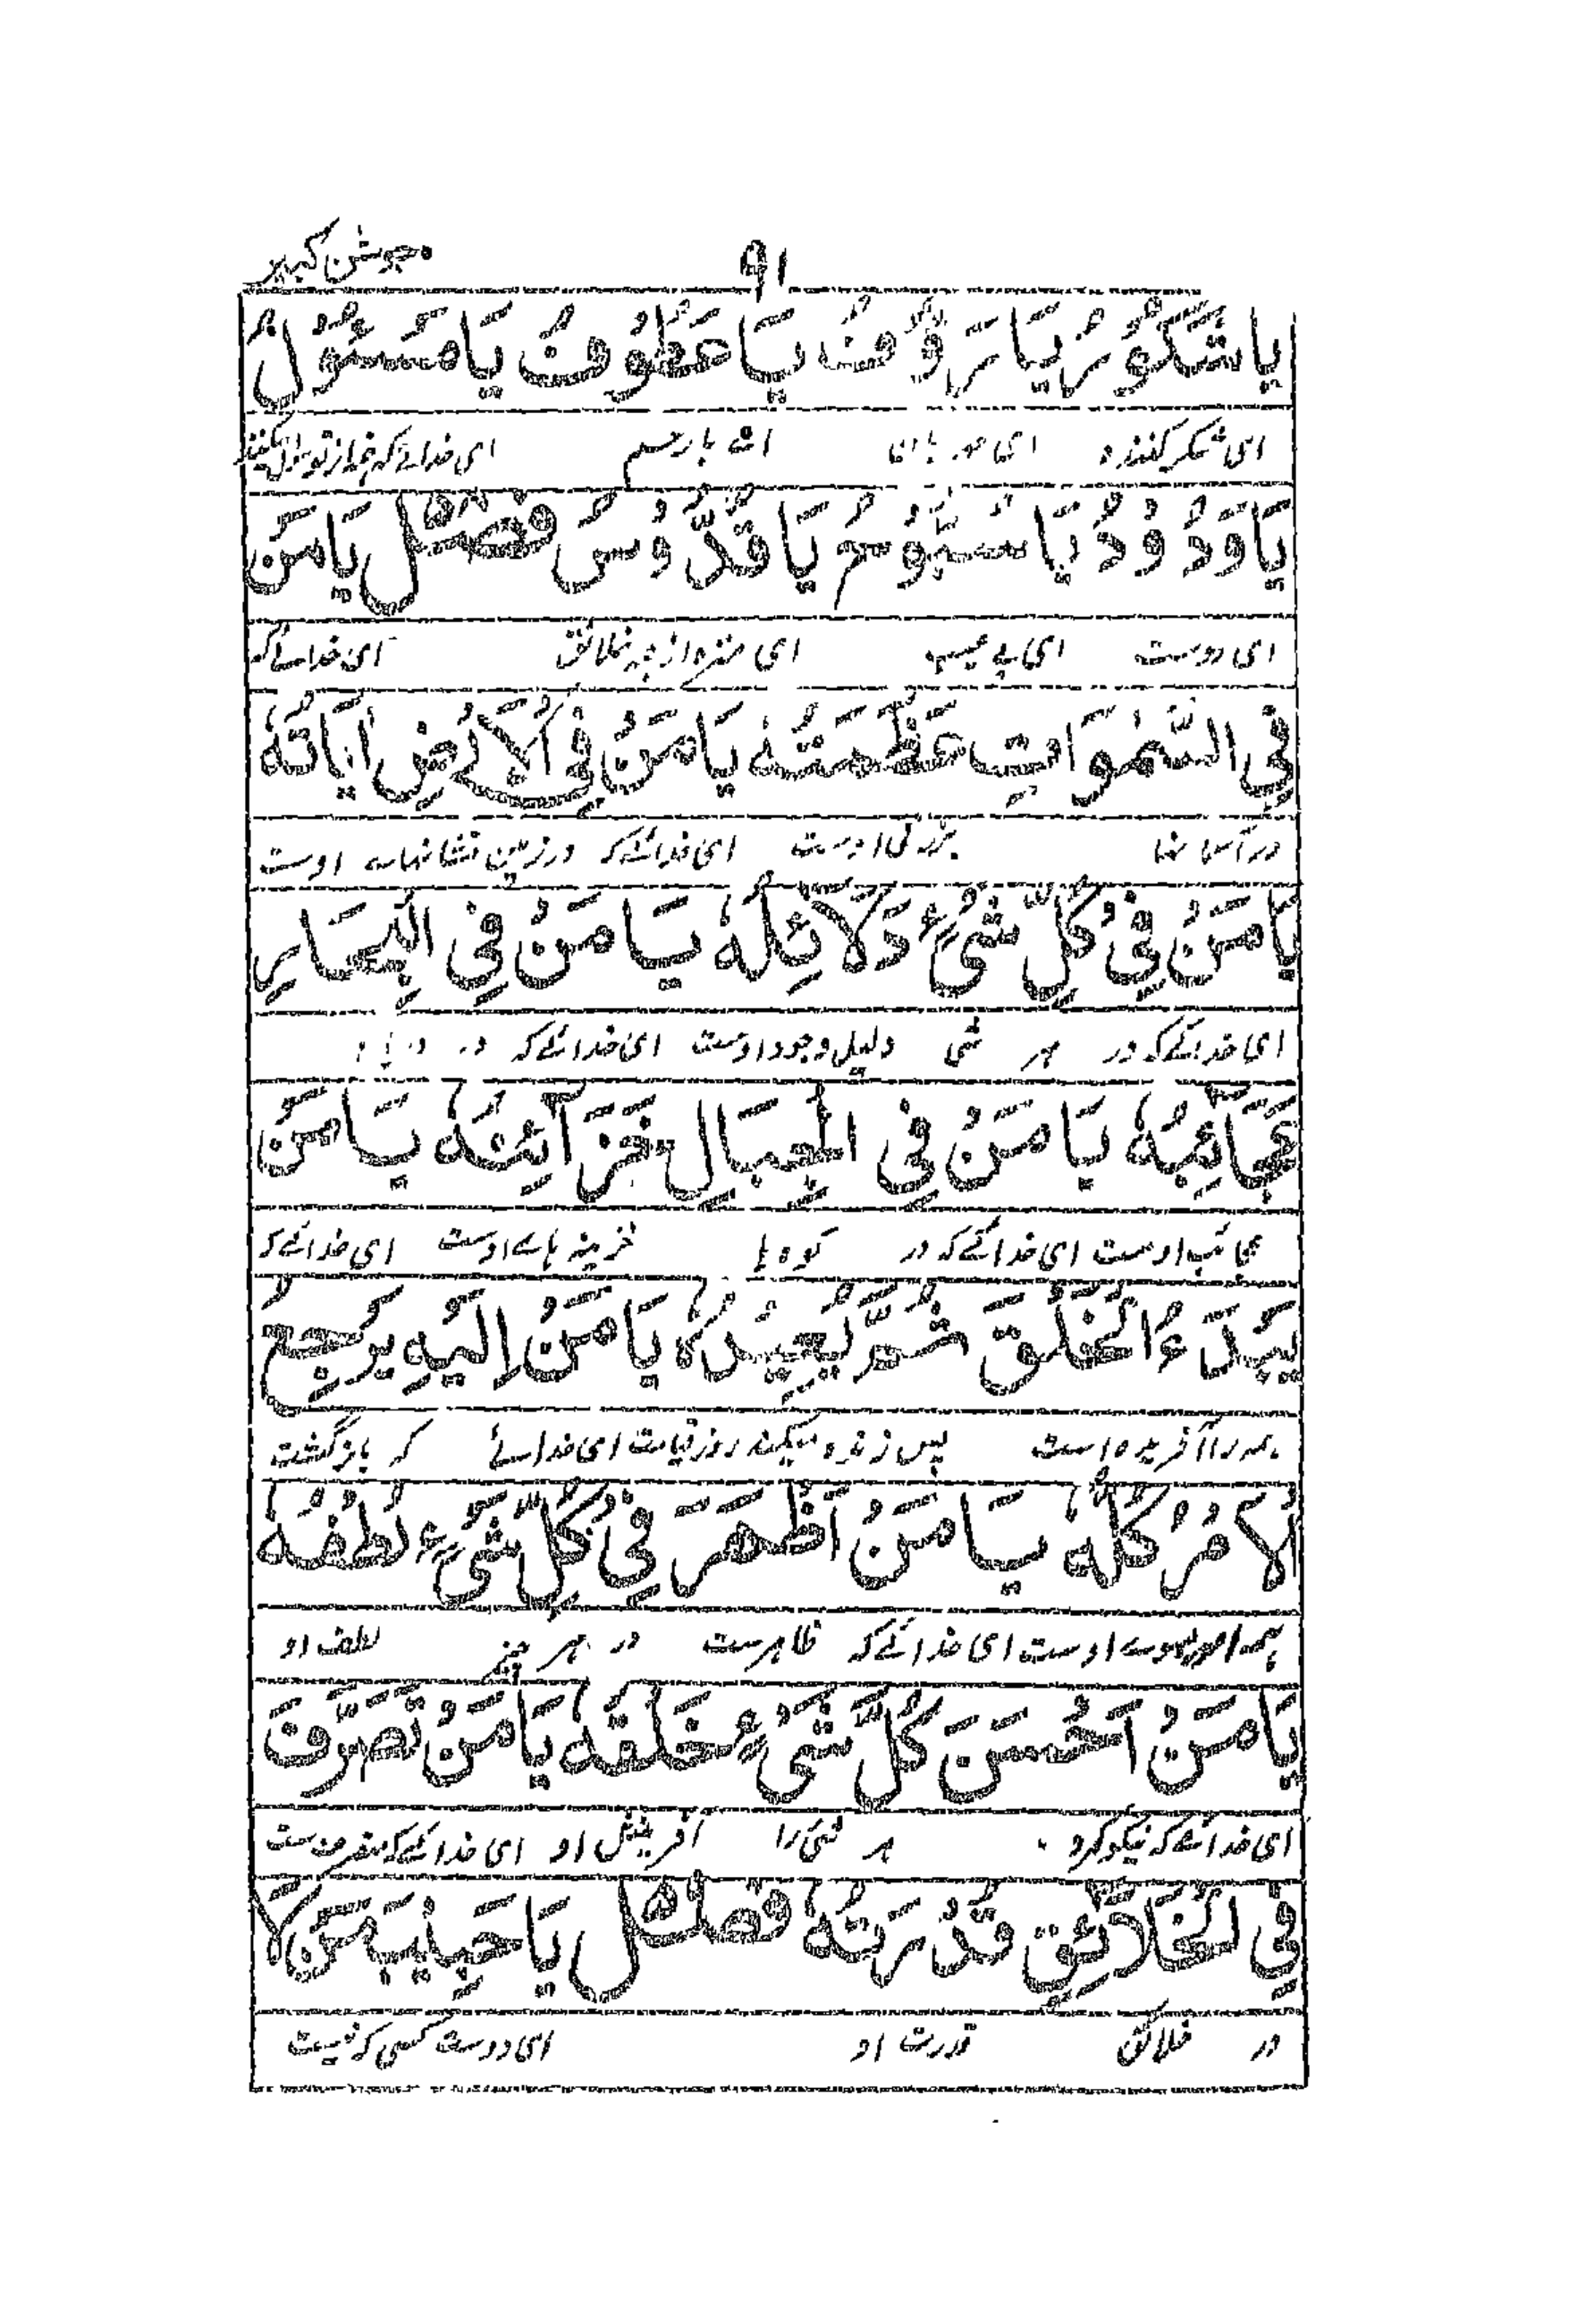 ۹۱ جوشن کبیر
یَا شَكُوْرُ یَا رَؤُفُ یَا عَطُوْفُ یَا مَسْئُوْلُ
ای شکر کننده ای مهربان ای بارحم ای خدائے که
یَا وَدُوْدُ یَا سُبُّوْحُ یَا قُدُّوْسُ فصل یَا مَنْ
ای دوست ای بے عیب ای منزه از خلائق ای خدائے که
فِی السَّمٰوَاتِ عَظَمَتُهٗ یَا مَنْ فِی الْاَرْضِ اٰیَاتُهٗ
در آسمانها بزرگی اوست ای خدائے که در زمین نشانهاے اوست
یَا مَنْ فِیْ كُلِّ شَیْءٍ دَلَائِلُهٗ یَا مَنْ فِی الْبِحَارِ
ای خدائے که در هر شی دلیل وجود اوست ای خدائے که در دریا
عَجَائِبُهٗ یَا مَنْ فِی الْجِبَالِ خَزَآئِنُهٗ یَا مَنْ
عجائب اوست ای خدائے که در کوه ها خزینه هاے اوست ای خدائے که
یَبْدَءُ الْخَلْقَ ثُمَّ یُعِیْدُهٗ یَا مَنْ اِلَیْهِ یَرْجِعُ
همه را آفریده است پس زنده میکند روز قیامت ای خداے که بازگشت
الْاَمْرُ كُلُّهٗ یَا مَنْ اَظْهَرَ فِیْ كُلِّ شَیْءٍ لُطْفَهٗ
همه امور بسوے اوست ای خدائے که ظاهرست در هر چیز لطف او
یَا مَنْ اَحْسَنَ كُلَّ شَیْءٍ خَلَقَهٗ یَا مَنْ تَصَرَّفَ
ای خدائے که نیکو کرد هر شی را آفرینش او ای خدائے که متصرف ست
فِی الْخَلَائِقِ قُدْرَتُهٗ فصل یَا حَبِیْبَ مَنْ لَا
در خلائق قدرت او ای دوست کسی که نیست